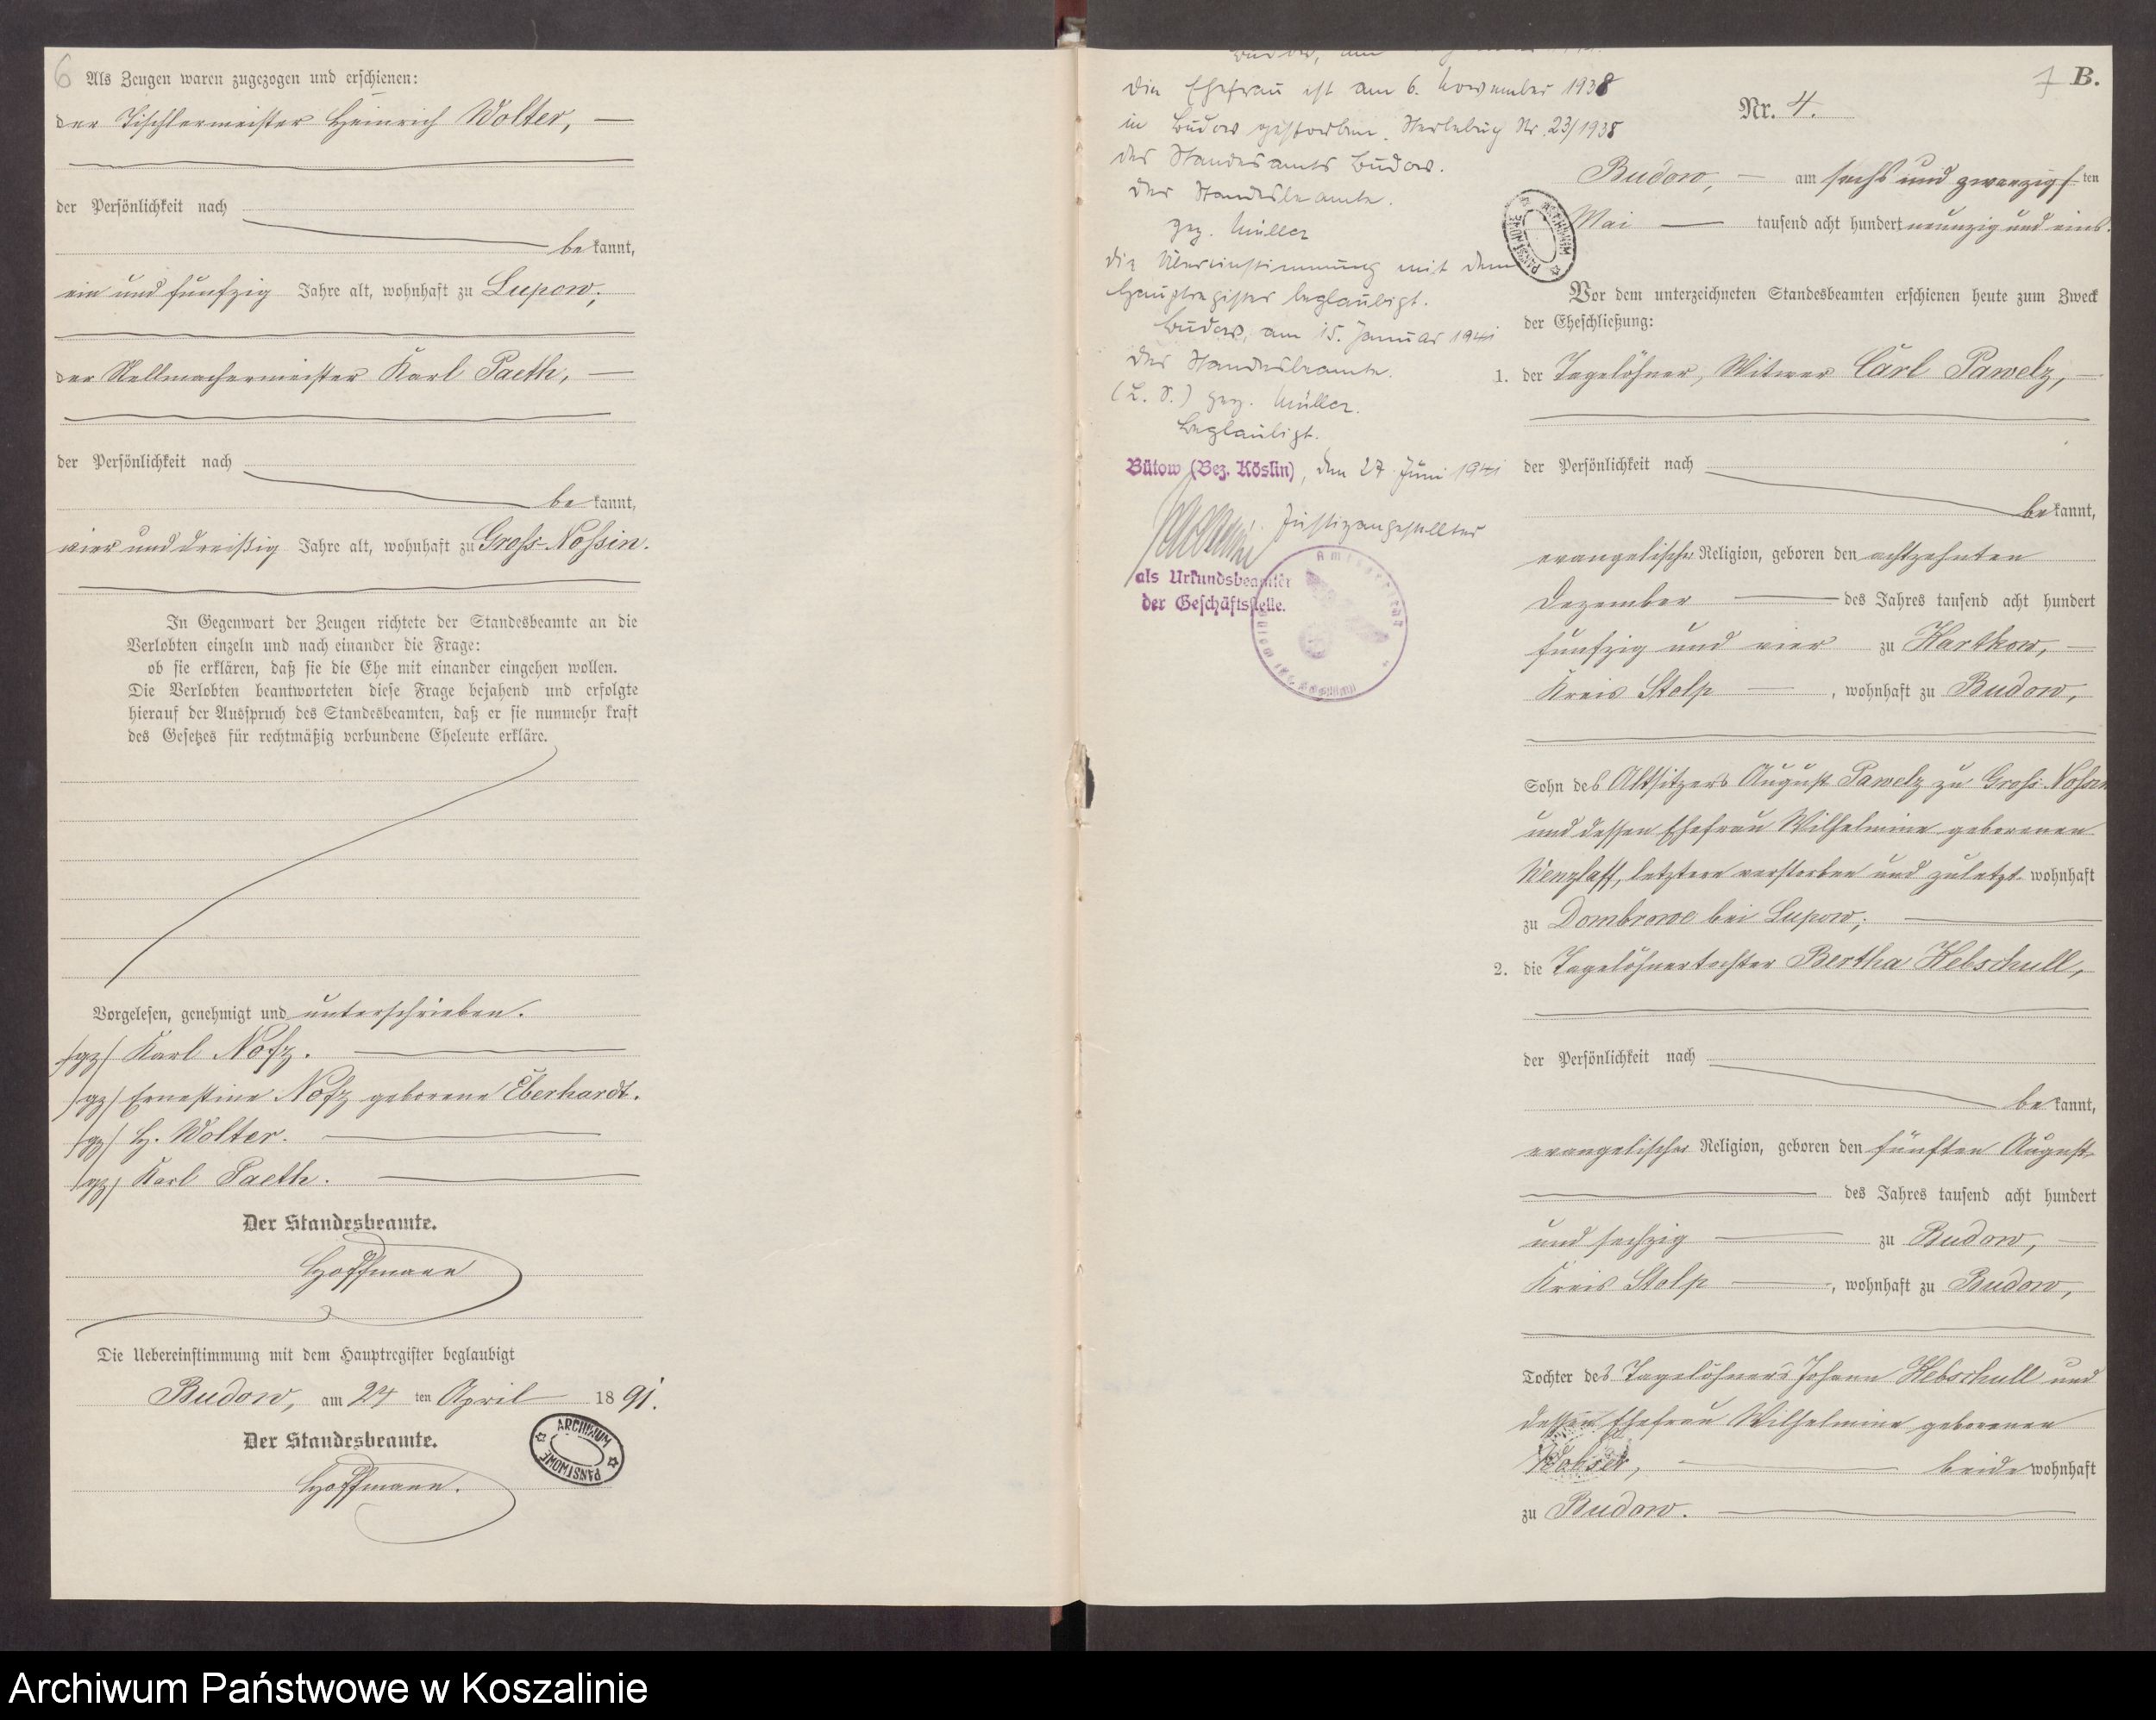 6 Als Zeugen waren zugezogen und erschienen:
der Tischlermeister Heinrich Wolter,
der Persönlichkeit nach
bekannt,
ein und fünfzig Jahre alt, wohnhaft zu Lupow;
der Stellmachermeister Karl Paeth,
der Persönlichkeit nach
bekannt,
vier und dreißig Jahre alt, wohnhaft zu Gross-Nossin.
In Gegenwart der Zeugen richtete der Standesbeamte an die
Verlobten einzeln und nach einander die Frage:
ob sie erklären, daß sie die Ehe mit einander eingehen wollen.
Die Verlobten beantworteten diese Frage bejahend und erfolgte
hierauf der Ausspruch des Standesbeamten, daß er sie nunmehr kraft
des Gesetzes für rechtmäßig verbundene Eheleute erkläre.
Vorgelesen, genehmigt und unterschrieben.
/gz/ Karl Nofz.
/gz/ Ernestine Nofz geborene Eberhardt.
/gz/ H. Wolter.
/gz/ Karl Paeth.
Der Standesbeamte.
Hoffmann
Die Uebereinstimmung mit dem Hauptregister beglaubigt
Budow, am 24 ten April 1891.
Der Standesbeamte.
Hoffmann.
ARCHIWUM PAŃSTWOWE
Die Ehefrau ist am 6. November 1938
in Budow gestorben. Sterbebuch Nr. 23/1938
des Standesamts Budow.
Der Standesbeamte.
gez. Müller
Die Übereinstimmung mit dem
Hauptregister beglaubigt.
Budow, am 15. Januar 1941
Der Standesbeamte.
(L. S.) gez. Müller.
Beglaubigt.
Bütow (Bez. Köslin), den 27. Juni 1941
Justizangestellter
als Urkundsbeamter
der Geschäftsstelle.
Amtsgericht
7 B.
Nr. 4.
Budow, am sechs und zwanzigsten
Mai tausend acht hundert neunzig und eins.
ARCHIWUM PAŃSTWOWE
Vor dem unterzeichneten Standesbeamten erschienen heute zum Zweck
der Eheschließung:
1. der Tagelöhner, Witwer Carl Pawelz,
der Persönlichkeit nach
bekannt,
evangelischer Religion, geboren den achtzehnten
Dezember des Jahres tausend acht hundert
fünfzig und vier zu Kartkow,
Kreis Stolp, wohnhaft zu Budow,
Sohn des Altsitzers August Pawelz zu Gross-Nossin
und dessen Ehefrau Wilhelmine geborenen
Wenzlaff, letztere verstorben und zuletzt wohnhaft
zu Dombrowe bei Lupow;
2. die Tagelöhnertochter Bertha Klebschull,
der Persönlichkeit nach
bekannt,
evangelischer Religion, geboren den fünften August
des Jahres tausend acht hundert
und sechzig zu Budow,
Kreis Stolp, wohnhaft zu Budow,
Tochter des Tagelöhners Johann Klebschull und
dessen Ehefrau Wilhelmine geborenen
Wobser, beide wohnhaft
zu Budow.
Archiwum Państwowe w Koszalinie